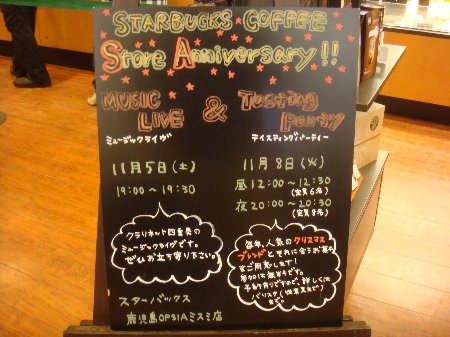 STARBUCKS COFFEE
Store Anniversary!!
MUSIC
LIVE
&
Tasting
Party
ミュージックライヴ
テイスティングパーティー
11月5日(土)
19:00～19:30
11月8日(火)
昼12:00～12:30
(定員6名)
夜20:00～20:30
(定員8名)
クラリネット四重奏の
ミュージックライヴです。
ぜひお立ち寄り下さい。
毎年、人気のクリスマス
ブレンドとそれに合うお菓子
をご用意します!
参加は無料です。
予約制ですので、詳しくは
バリスタ(従業員)まで
スターバックス
鹿児島OPSIAミスミ店